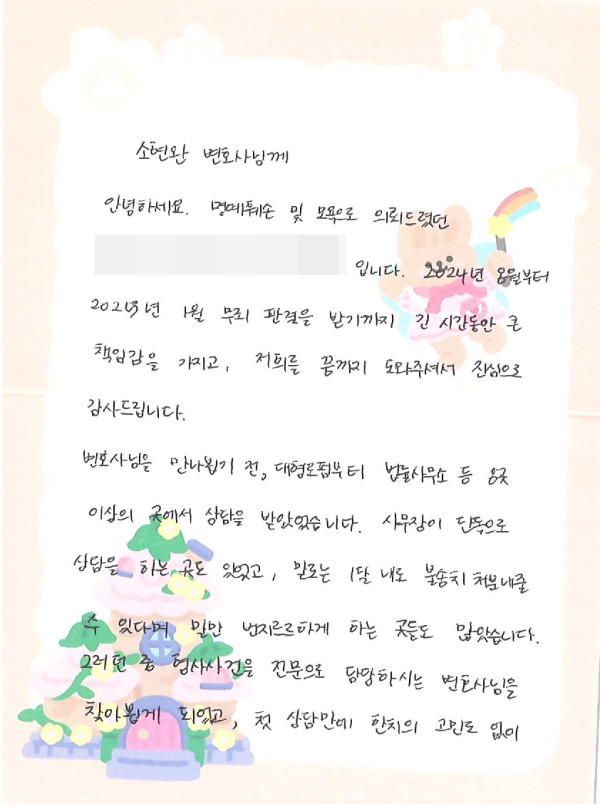 소현완 변호사님께
안녕하세요. 명예훼손 및 모욕으로 의뢰드렸던
입니다. 2024년 8월부터
2025년 1월 무죄 판결을 받기까지 긴 시간동안 큰
책임감을 가지고, 저희를 끝까지 도와주셔서 진심으로
감사드립니다.
변호사님을 만나뵙기 전, 대형로펌부터 법률사무소 등 8곳
이상의 곳에서 상담을 받았었습니다. 사무장이 단독으로
상담을 하는 곳도 있었고, 말로는 1달 내로 불송치 처분내줄
수 있다며 말만 번지르르하게 하는 곳들도 많았습니다.
그러던 중 형사사건을 전문으로 담당하시는 변호사님을
찾아뵙게 되었고, 첫 상담만에 한치의 고민도 없이